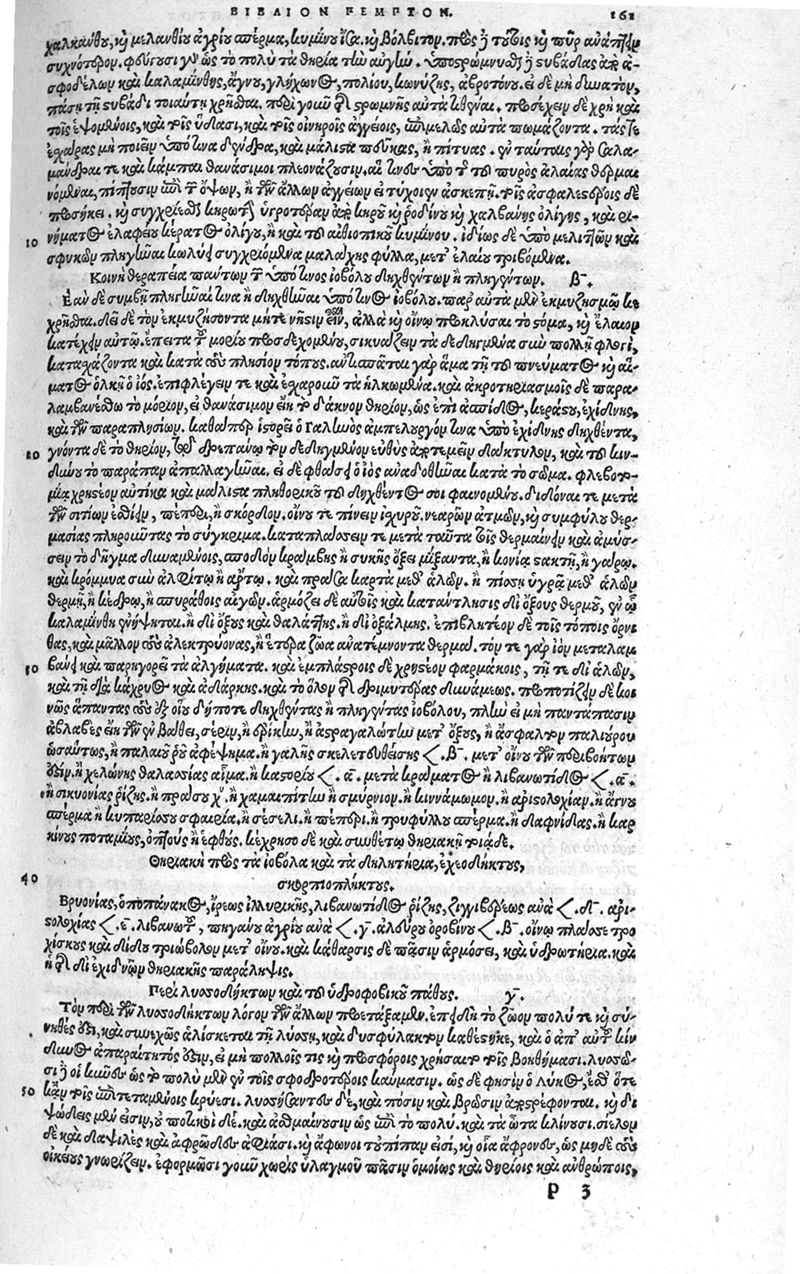 ΒΙΒΛΙΟΝ ΠΕΜΠΤΟΝ. 161
χαλκάνθου, καὶ μελανθίου ἀγρίου σπέρμα, κυμίνου ἴσα. καὶ βόλβιτον. πρὸς δὲ τούτοις καὶ πῦρ ἀνάπτειν
συχνότερον. φεύγουσι γὰρ ὡς τὸ πολὺ τὰ θηρία τὴν αὐγήν. ὑποστρωμνύσθω δὲ στιβάδας ἀπὸ ἀ-
σφοδέλων καὶ καλαμίνθης, ἄγνου, γλήχωνος, πολίου, κωνύζης, ἀβροτόνου. εἰ δὲ μὴ δυνατὸν,
πάσῃ τῇ στιβάδι τοιαύτῃ χρῆσθαι. περὶ γοῦν τῆς στρωμνῆς αὐτὰ τιθέναι. προσέχειν δὲ χρὴ καὶ
τοῖς ἑψομένοις, καὶ τοῖς ὕδασι, καὶ τοῖς οἰνηροῖς ἀγγείοις, ἐπιμελῶς αὐτὰ πωμάζοντα. τάς τε
ἐσχάρας μὴ ποιεῖν ὑπό τινα δένδρα, καὶ μάλιστα πεύκας, ἢ πίτυας. ἐν ταύταις γὰρ σαλα-
μάνδραι τε καὶ κάμπαι θανάσιμοι πλεονάζουσιν, αἵτινες ὑπὸ τῆς τοῦ πυρὸς ἀλέας θερμαι
νόμεναι, πίπτουσιν ἐπὶ τῶν ὄψων, ἢ τῶν ἄλλων ἀγγείων εἰ τύχοιεν ἀσκεπῆ. τοῖς ἀσφαλεστέροις δὲ
10 νήματος ἐλαφείου κέρατος ὀλίγου, ἢ καὶ τοῦ αἰθιοπικοῦ κυμίνου. ἰδίως δὲ ὑπὸ μελιττῶν καὶ
σφηκῶν πληγῆναι κωλύει συγχριόμενα μαλάχης φύλλα, μετ' ἐλαίου τριβόμενα.
Κοινὴ θεραπεία πάντων τῶν ὑπό τινος ἰοβόλου δηχθέντων ἢ πληγέντων. β-.
Ἐὰν δὲ συμβῇ πληγῆναί τινα ἢ δηχθῆναι ὑπό τινος ἰοβόλου. παρ' αὐτὰ μὲν ἐκμυζησμῷ κε
χρῆσθαι. δεῖ δὲ τὸν ἐκμυζήσοντα μήτε νῆστιν εἶναι, ἀλλὰ καὶ οἴνῳ προκλύσαι τὸ στόμα, καὶ ἔλαιον
κατέχειν αὐτῷ. ἔπειτα τοῦ μορίου προσδεχομένου, σικυάζειν τὰ δεδηγμένα σὺν πολλῇ φλογὶ,
κατασχάζοντα καὶ κατὰ τοὺς πλησίον τόπους. ἀντισπᾶται γὰρ ἅμα τῇ τοῦ πνεύματος καὶ αἵ-
ματος ὁλκῇ ὁ ἰός. ἐπιφλέγειν τε καὶ ἐσχαροῦν τὰ ἡλκωμένα. καὶ ἀκροτηριασμοῖς δὲ παρα-
λαμβανέσθω τὸ μόριον, εἰ θανάσιμον εἴη τὸ δάκνον θηρίον, ὡς ἐπὶ ἀσπίδος, κεράστου, ἐχίδνης,
καὶ τῶν παραπλησίων. καθάπερ ἱστορεῖ ὁ Γαληνὸς ἀμπελουργόν τινα ὑπὸ ἐχίδνης δηχθέντα,
20 γνόντα δὲ τὸ θηρίον, τῷ δρεπάνῳ τὸν δεδηγμένον εὐθὺς ἀποτεμεῖν δάκτυλον, καὶ τοῦ κιν-
δύνου τὸ παράπαν ἀπαλλαγῆναι. εἰ δὲ φθάσῃ ὁ ἰὸς ἀναδοθῆναι κατὰ τὸ σῶμα. φλεβοτο-
μίᾳ χρηστέον αὐτίκα καὶ μάλιστα πληθωρικοῦ τοῦ δηχθέντος σοι φαινομένου. διδόναι τε μετὰ
τῶν σιτίων ἐσθίειν, πέπερι, ἢ σκόροδον. οἴνου τε πίνειν ἰσχυροῦ. νεαρῶν ἀτμῶν, καὶ συμφύλου θερ-
μασίας πληροῦντας τὸ σύγκριμα. καταπλάσσειν τε μετὰ ταῦτα τοῖς θερμαίνειν καὶ ἀμύσ-
σειν τὸ δῆγμα δυναμένοις, σποδὸν κράμβης ἢ συκῆς ὄξει μίξαντα, ἢ κονίᾳ στακτῇ, ἢ γάρῳ.
καὶ κρόμμυα σὺν ἀλφίτῳ ἢ ἄρτῳ. καὶ πράσα καρτὰ μεθ' ἁλῶν. ἢ πίσσῃ ὑγρᾷ μεθ' ἁλῶν
θερμῇ, ἢ κέδρῳ, ἢ σπυράθοις αἰγῶν. ἁρμόζει δὲ αὐτοῖς καὶ κατάντλησις δι' ὄξους θερμοῦ, ἐν ᾧ
καλαμίνθη ἐνήψηται. ἢ δι' ὄξους καὶ θαλάττης. ἢ δι' ὀξάλμης. ἐπιβλητέον δὲ τοῖς τόποις ὄρνι
θας, καὶ μᾶλλον τοὺς ἀλεκτρυόνας, ἢ ἕτερα ζῶα ἀνατέμνοντα θερμά. τόν τε γὰρ ἰὸν μεταλαμ
30 βάνει καὶ παρηγορεῖ τὰ ἀλγήματα. καὶ ἐμπλάστροις δὲ χρηστέον φαρμάκοις, τῇ τε δι' ἁλῶν,
καὶ τῇ διὰ κάχρυος καὶ ἀδάρκης. καὶ τὸ ὅλον τῆς δριμυτέρας δυνάμεως. προποτίζειν δὲ κοι
νῶς ἅπαντας τοὺς ἐξ οἵου δήποτε δηχθέντας ἢ πληγέντας ἰοβόλου, πλὴν εἰ μὴ παντάπασιν
ὡσαύτως, ἢ παλιούρου ἀφέψημα. ἢ γαλῆς σκελετευθείσης <.β-. μετ' οἴνου
ἢ χελώνης θαλασσίας αἷμα. ἢ καστορίου <.α-. μετὰ κράματος ἢ λιβανωτίδος <.α-.
ἢ σικυωνίας ῥίζης. ἢ πράσου χυλ. ἢ χαμαιπίτυν ἢ σμύρνιον. ἢ κιννάμωμον. ἢ ἀριστολοχίαν. ἢ ἄγνου
σπέρμα ἢ κυπαρίσσου σφαιρία. ἢ σέσελι. ἢ πέπερι. ἢ τριφύλλου σπέρμα. ἢ δαφνίδας. ἢ καρ
κίνους ποταμίους, ὀπτοὺς ἢ ἑφθούς. κέχρησο δὲ καὶ συνθέτῳ θηριακῇ τοιᾷδε.
Θηριακὴ πρὸς τὰ ἰοβόλα καὶ τὰ δηλητήρια, ἐχεοδήκτους,
40 σκορπιοπλήκτους.
Βρυωνίας, ὀποπάνακος, ἴρεως ἰλλυρικῆς, λιβανωτίδος ῥίζης, ζιγγιβέρεως ἀνὰ <.δ-. ἀρι-
στολοχίας <.ε-. λιβανωτ, πηγάνου ἀγρίου ἀνὰ <.γ-. ἀλεύρου ὀροβίνου <.β-. οἴνῳ πλάσσε τρο
χίσκους καὶ δίδου τριώβολον μετ' οἴνου. καὶ κάθαρσις δὲ πᾶσιν ἁρμόσει, καὶ ὑδρωτήρια. καὶ
ἡ τῆς δι' ἐχιδνῶν θηριακῆς παράληψις.
Περὶ λυσσοδήκτων καὶ τοῦ ὑδροφοβικοῦ πάθους. γ-.
Τὸν περὶ τῶν λυσσοδήκτων λόγον τῶν ἄλλων προετάξαμεν, ἐπειδὴ τὸ ζῶον πολύ τε καὶ σύ-
νηθές ἐστι, καὶ συνεχῶς ἁλίσκεται τῇ λύσσῃ, καὶ δυσφύλακτον καθέστηκε, καὶ ὁ ἀπ' αὐτοῦ κίν
δυνος ἀπαραίτητός ἐστιν, εἰ μὴ πολλοῖς τις καὶ προσφόροις χρήσαιτο τοῖς βοηθήμασι. λυσσῶ-
σι δὲ οἱ κύνες ὡς τὸ πολὺ μὲν ἐν τοῖς σφοδροτέροις καύμασιν. ὡς δέ φησιν ὁ Λύκος, ἔσθ' ὅτε
50 κἀν τοῖς ἐπιτεταμένοις κρύεσι. λυσσήσαντες δὲ, καὶ πόσιν καὶ βρῶσιν ἀποστρέφονται. καὶ δι
ψώδεις μέν εἰσιν, οὐ ποτικοὶ δέ. καὶ ἀσθμαίνουσιν ὡς ἐπὶ τὸ πολύ. καὶ τὰ ὦτα κλίνουσι. σίελον
δὲ καὶ δαψιλὲς καὶ ἀφρῶδες ἀφιᾶσι. καὶ ἄφωνοι τοὐπίπαν εἰσὶ, καὶ οἷα ἄφρονες, ὡς μηδὲ τοὺς
οἰκείους γνωρίζειν. ἐφορμῶσι γοῦν χωρὶς ὑλαγμοῦ πᾶσιν ὁμοίως καὶ θηρίοις καὶ ἀνθρώποις,
P 3